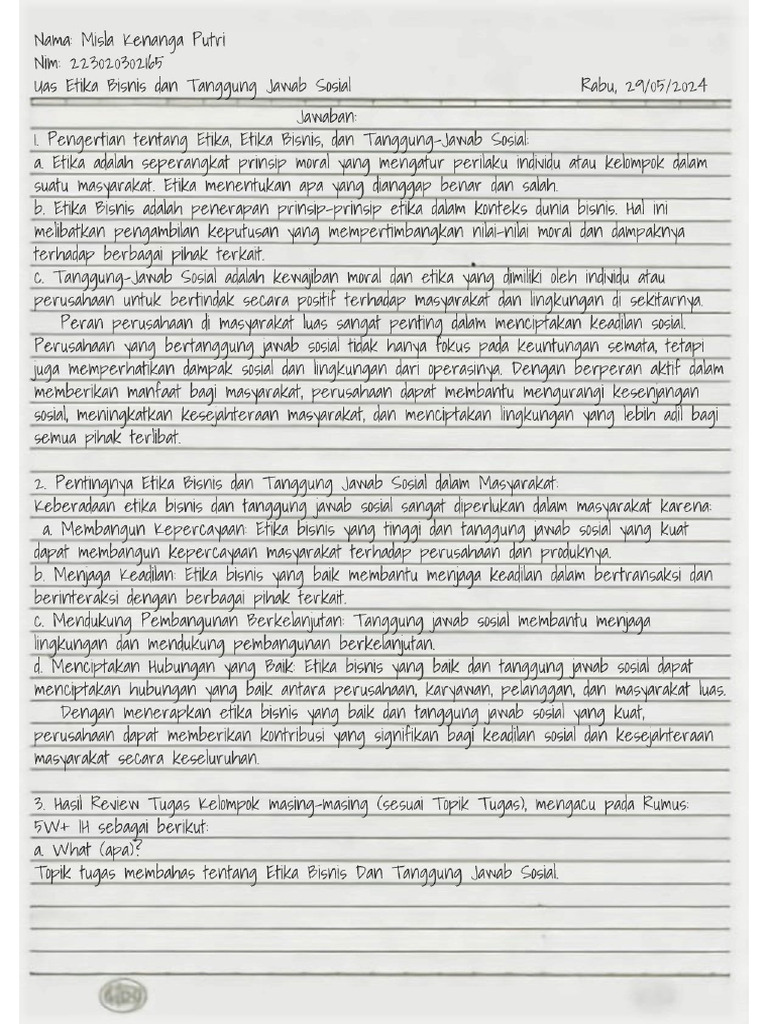 Nama: Misla Kenanga Putri
Nim: 223020302165
Uas Etika Bisnis dan Tanggung Jawab Sosial Rabu, 29/05/2024
Jawaban:
1. Pengertian tentang Etika, Etika Bisnis, dan Tanggung-Jawab Sosial:
a. Etika adalah seperangkat prinsip moral yang mengatur perilaku individu atau kelompok dalam
suatu masyarakat. Etika menentukan apa yang dianggap benar dan salah.
b. Etika Bisnis adalah penerapan prinsip-prinsip etika dalam konteks dunia bisnis. Hal ini
melibatkan pengambilan keputusan yang mempertimbangkan nilai-nilai moral dan dampaknya
terhadap berbagai pihak terkait.
c. Tanggung-Jawab Sosial adalah kewajiban moral dan etika yang dimiliki oleh individu atau
perusahaan untuk bertindak secara positif terhadap masyarakat dan lingkungan di sekitarnya.
Peran perusahaan di masyarakat luas sangat penting dalam menciptakan keadilan sosial.
Perusahaan yang bertanggung jawab sosial tidak hanya fokus pada keuntungan semata, tetapi
juga memperhatikan dampak sosial dan lingkungan dari operasinya. Dengan berperan aktif dalam
memberikan manfaat bagi masyarakat, perusahaan dapat membantu mengurangi kesenjangan
sosial, meningkatkan kesejahteraan masyarakat, dan menciptakan lingkungan yang lebih adil bagi
semua pihak terlibat.
2. Pentingnya Etika Bisnis dan Tanggung Jawab Sosial dalam Masyarakat:
Keberadaan etika bisnis dan tanggung jawab sosial sangat diperlukan dalam masyarakat karena:
a. Membangun Kepercayaan: Etika bisnis yang tinggi dan tanggung jawab sosial yang kuat
dapat membangun kepercayaan masyarakat terhadap perusahaan dan produknya.
b. Menjaga Keadilan: Etika bisnis yang baik membantu menjaga keadilan dalam bertransaksi dan
berinteraksi dengan berbagai pihak terkait.
c. Mendukung Pembangunan Berkelanjutan: Tanggung jawab sosial membantu menjaga
lingkungan dan mendukung pembangunan berkelanjutan.
d. Menciptakan Hubungan yang Baik: Etika bisnis yang baik dan tanggung jawab sosial dapat
menciptakan hubungan yang baik antara perusahaan, karyawan, pelanggan, dan masyarakat luas.
Dengan menerapkan etika bisnis yang baik dan tanggung jawab sosial yang kuat,
perusahaan dapat memberikan kontribusi yang signifikan bagi keadilan sosial dan kesejahteraan
masyarakat secara keseluruhan.
3. Hasil Review Tugas Kelompok masing-masing (sesuai Topik Tugas), mengacu pada Rumus:
5W+ 1H sebagai berikut:
a. What (apa)?
Topik tugas membahas tentang Etika Bisnis Dan Tanggung Jawab Sosial.